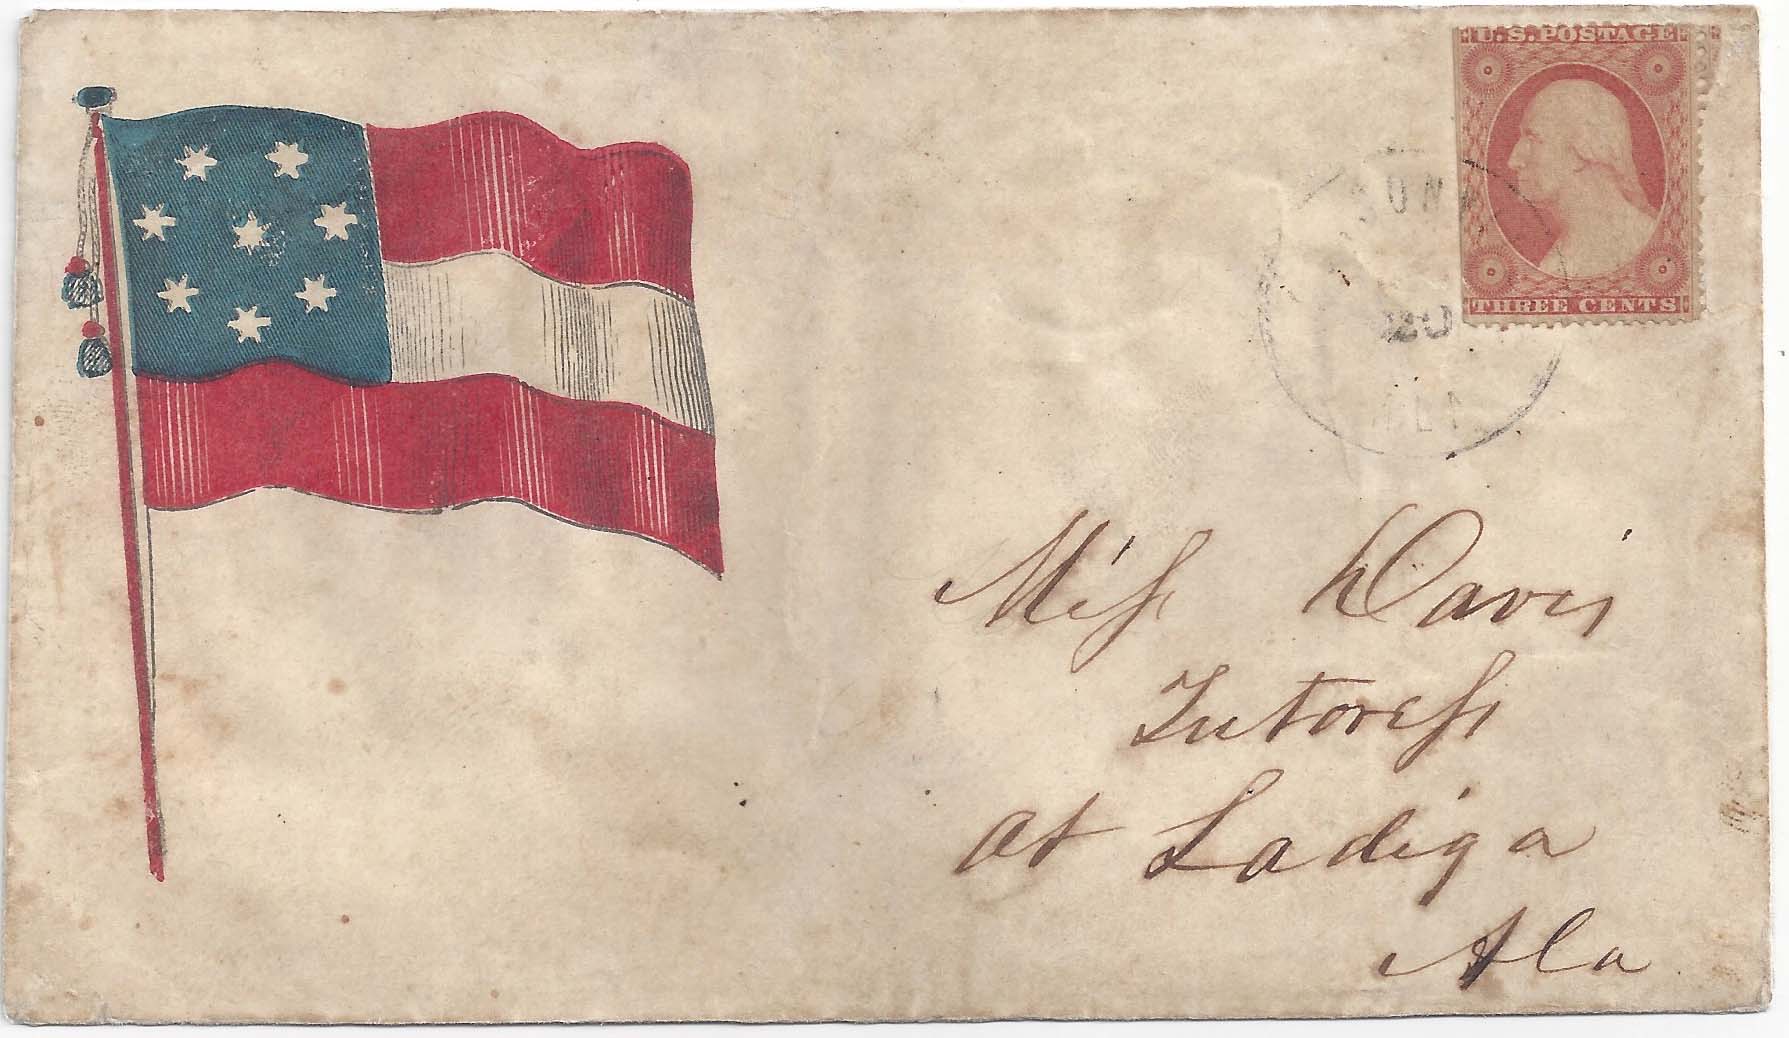 U.S. POSTAGE
THREE CENTS
20
Miss Davis
Tutoress
at Ladiga
Ala